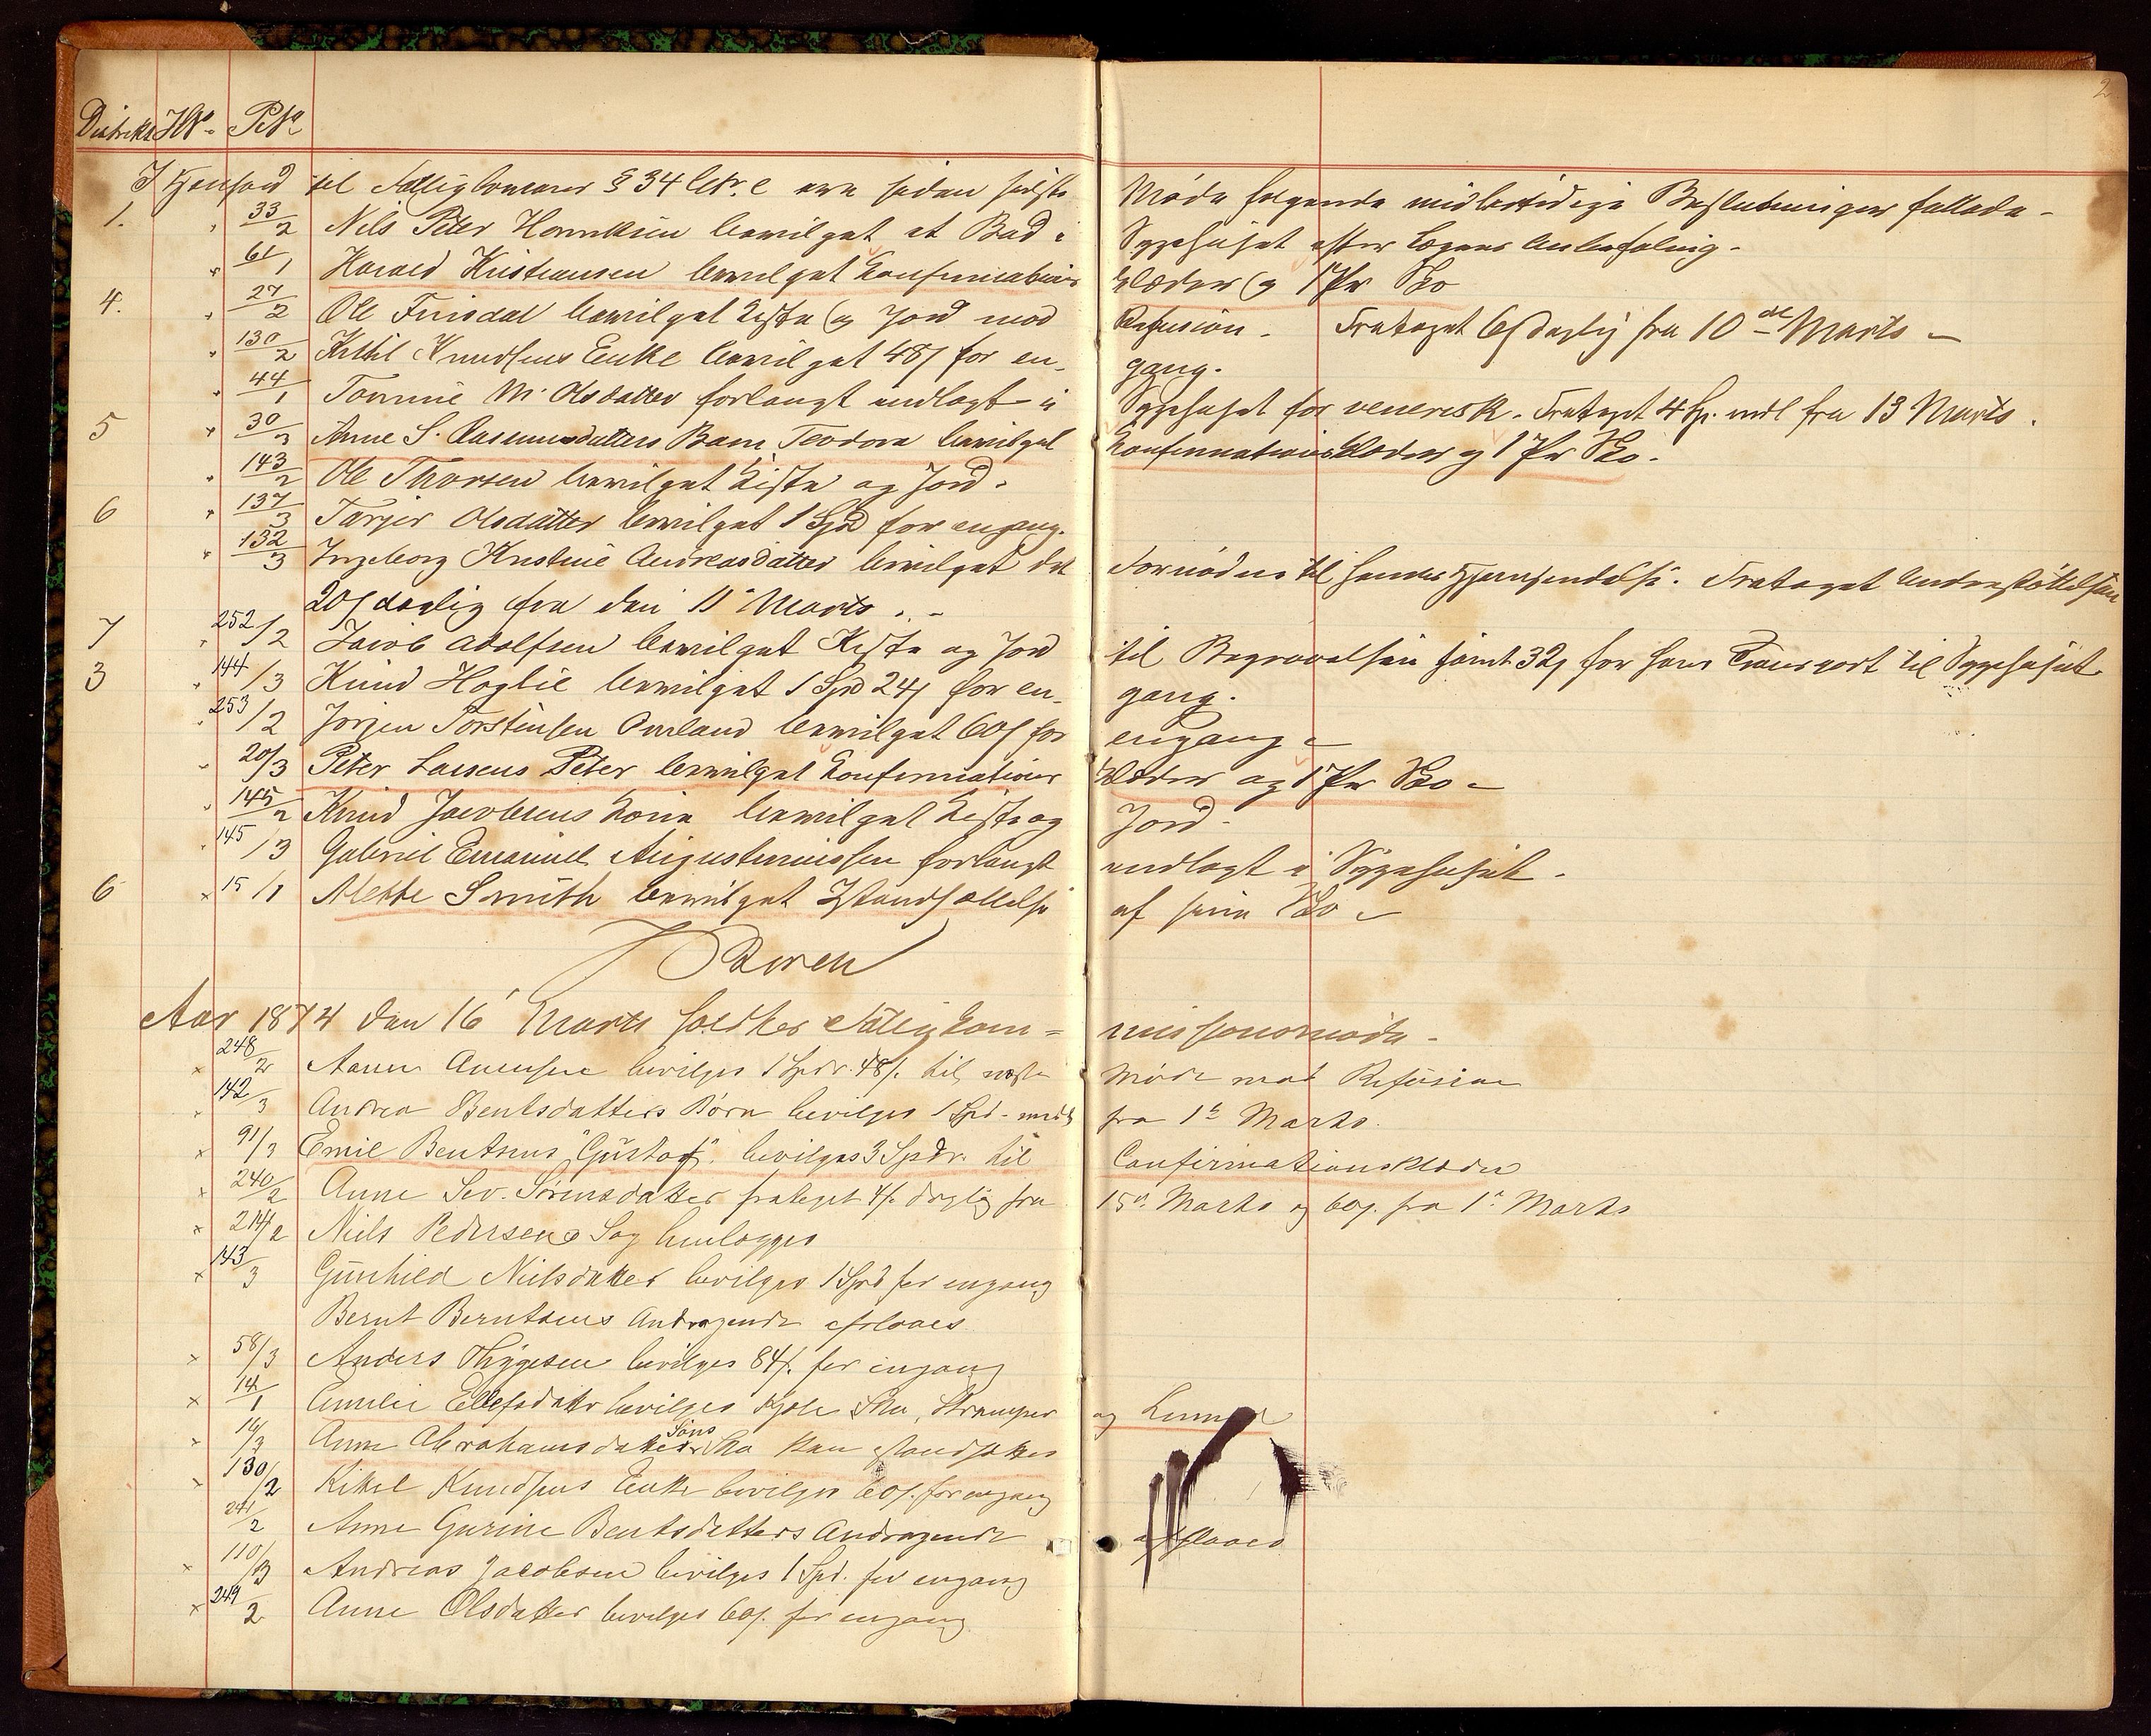 2
Distrikt HNo. PNo.
I Henhold til Fattiglovens § 34 litr. c ere siden sidste Møde følgende midlertidige Beslutninger fattede -
1. " 33/2 Nils Peter Henriksen bevilget et Bad i Sygehuset efter Lægens Anbefaling -
" 61/1 Harald Kristiansen bevilget Konfirmations Klæder og 1 Par Sko
4. " 27/2 Ole Finsdal bevilget Kiste og Jord mod Refusion - Frataget 6 s daglig fra 10de Marts -
" 130/2 Kittil Knudsens Enke bevilget 48 s for en- gang.
" 44/1 Tomine M. Olsdatter forlangt indlagt i Sygehuset for venerisk. Frataget 4 Sp. mdl fra 13 Marts.
5 " 30/3 Anne S. Rasmusdatters Barn, Teodora bevilget Konfirmationsklæder og 1 Par Sko.
" 143/2 Ole Thorsen bevilget Kiste og Jord.
6 " 137/3 Tarjer Olsdatter bevilget 1 Spd for engang.
" 132/3 Ingeborg Kristine Andreasdatter bevilget det Fornødne til hendes Hjemsendelse. Frataget Understøttelsen
20 s daglig fra den 11' Marts . -
7 " 252/2 Jacob Adolfsen bevilget Kiste og Jord til Begravelsen samt 32 s for hans Transport til Sygehuset
3 " 144/3 Knud Høglie bevilget 1 Spd 24 s for en- gang.
" 253/2 Jørgen Torstensen Omland bevilget 60 s for engang -
" 20/3 Peter Larsens Peter bevilget Konfirmations Klæder og 1 Par Sko -
" 145/2 Knud Jacobsens Kone bevilget Kiste og Jord -
" 145/3 Gabriel Emanuel Augustinussen forlangt indlagt i Sygehuset.
6 × 15/1 Mette Smith bevilget Istandsættelse af sine Sko -
Aar 1874 den 16' Marts holdtes Fattigkom= missionsmøde -
× 248/2 Aanen Aanensen bevilges 1 Spdr. 48 s. til næste Møde mod Refusion
" 142/3 Andrea Bentsdatters Børn bevilges 1 Spd. mdl fra 1ste Marts.
× 91/3 Emil Bentsens "Gustav". bevilges 3 Spdr. til Confirmationsklæder
× 240/2 Anne Sev. Sørensdatter frataget 4 s. daglig fra 15de Marts og 60 s. fra 1ste Marts
× 214/2 Niels Pedersens Sag henlægges
× 143/3 Gunhild Nielsdatter bevilges 1 Spd for engang
Bernt Berntsens Andragende afslaaes
× 58/3 Anders Thygesen bevilges 84 s. for engang
× 14/1 Emelie Ellefsdatter bevilges Kjole Sko, Strømper og Linned
× 19/3 Anne Abrahamsdatters Søns Sko kan istandsættes
× 130/2 Kittel Knudsens Enke bevilges 60 s. for engang
241/2 Anne Gurine Bentsdatters Andragende afslaaes
× 110/3 Andreas Jacobsen bevilges 1 Spd. for engang
× 249/2 Anne Olsdatter bevilges 60 s. for engang